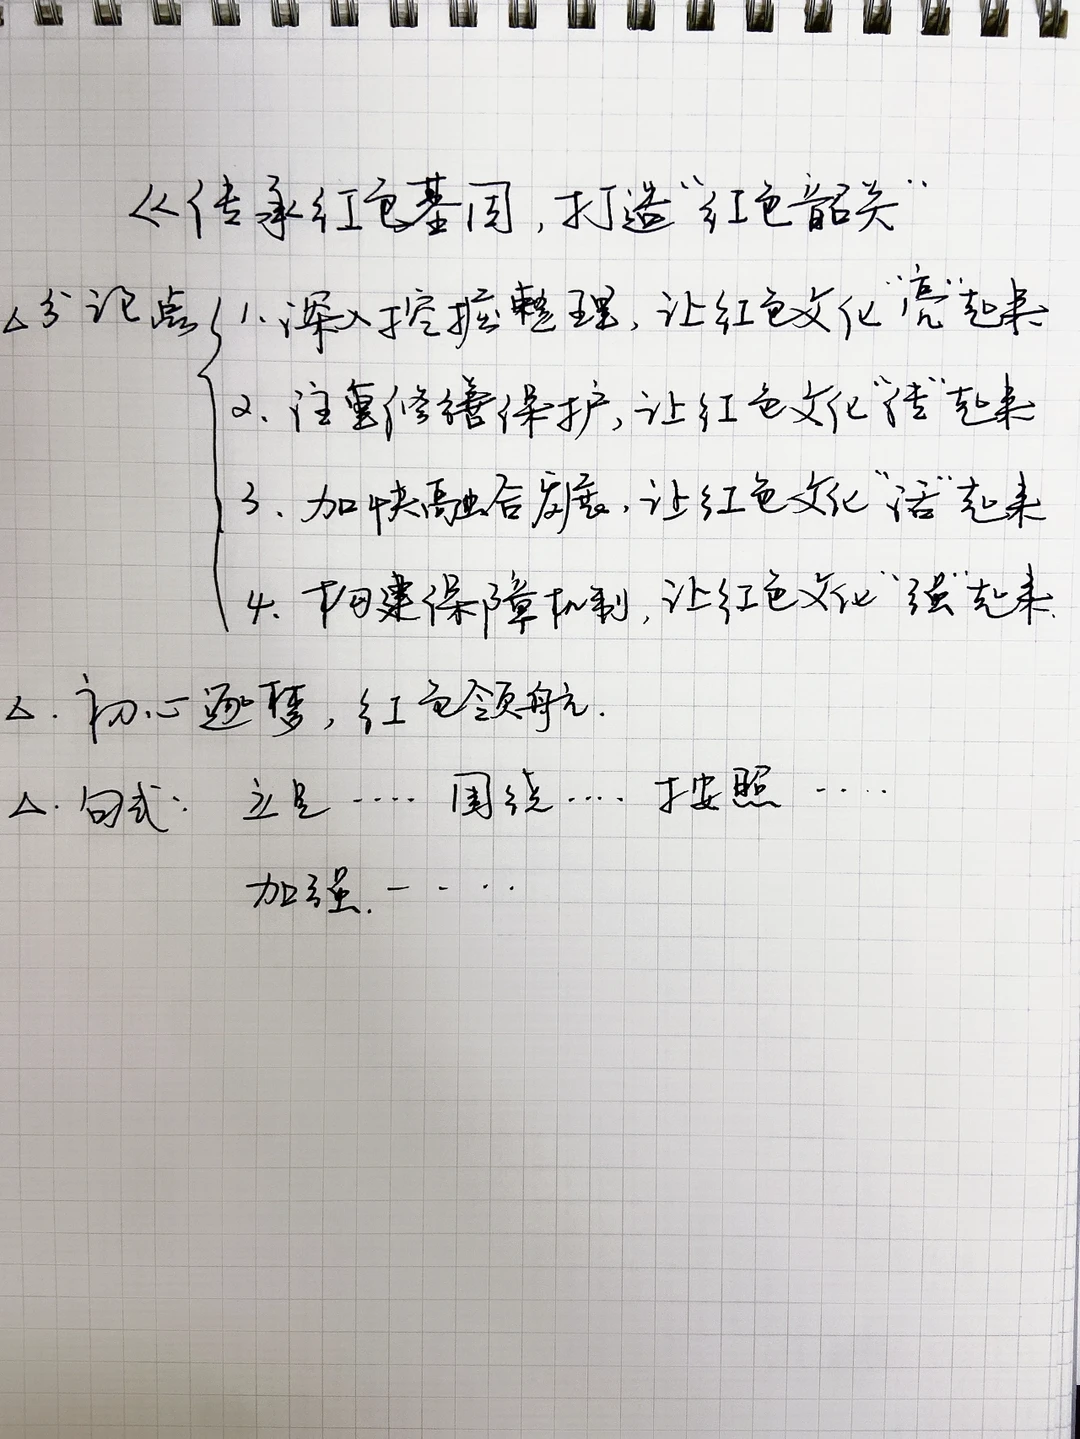 《传承红色基因，打造“红色韶关”
△分论点 1、深入挖掘整理，让红色文化“亮”起来
2、注重修缮保护，让红色文化“传”起来
3、加快融合发展，让红色文化“活”起来
4、构建保障机制，让红色文化“强”起来.
△. 初心逐梦，红色领航.
△. 句式： 立足····围绕····按照····
加强.····